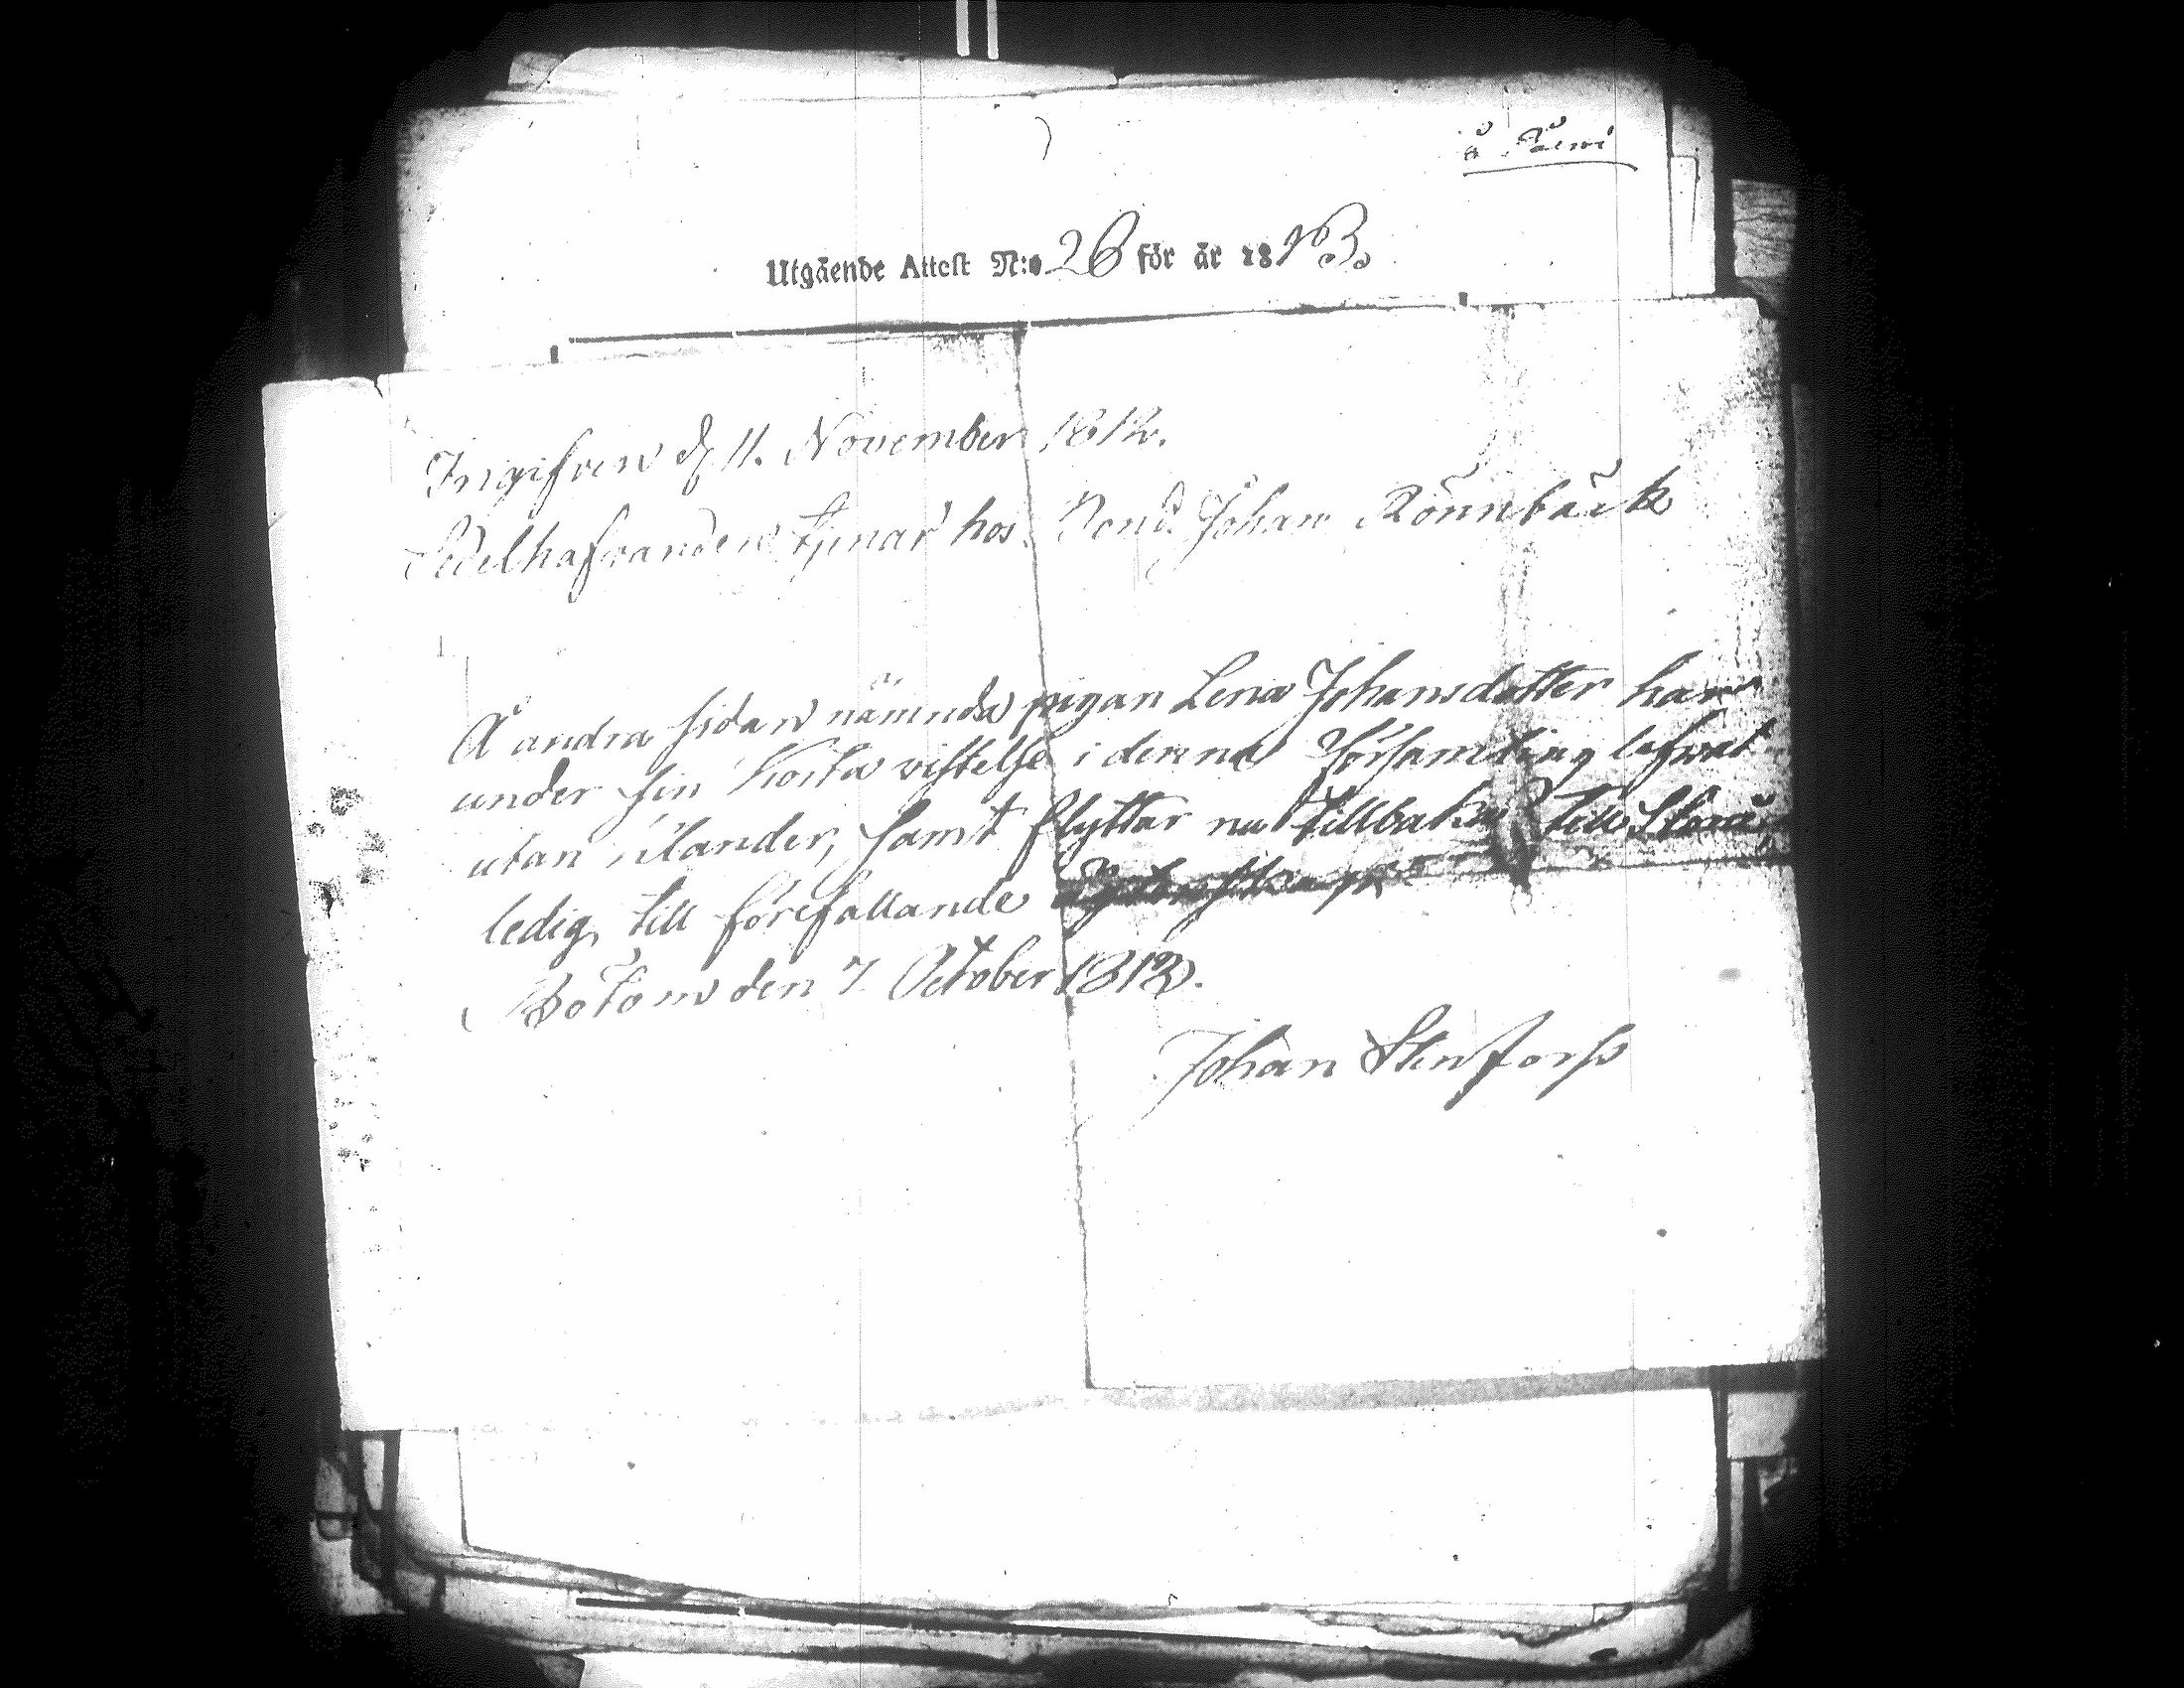 å Räwi
Utgående Attest N:o 26 för år 1813.
Ingifven d 11. November 1812.
Sedelhafvanden tjenar hos Bond. Johan Rönnbäck
Å andra sidan nämnda pigan Lena Johansdotter har
under sin korta vistelse i denna Församling lefvat
utan klander, samt flyttar nu tillbaka till Storå,
ledig till förefallande ägtenskap
Bötom den 7 October 1812.
Johan Stenfors